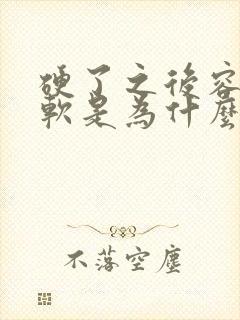 硬了之後容
軟是為什麼
不落空塵